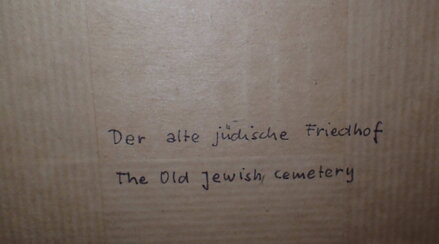 Der alte jüdische Friedhof
The Old Jewish cemetery